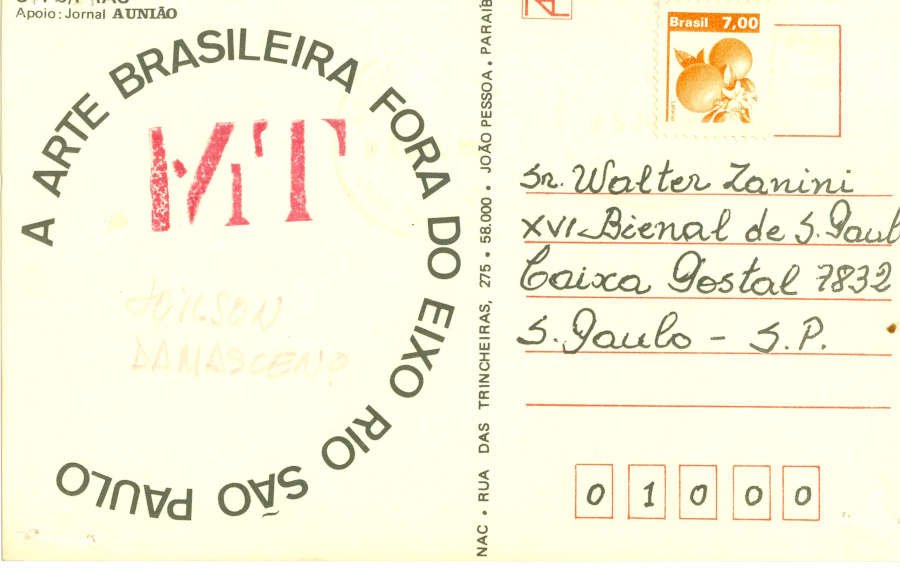 Apoio: Jornal A UNIÃO
A ARTE BRASILEIRA FORA DO EIXO RIO SÃO PAULO
MT
NAC • RUA DAS TRINCHEIRAS, 275 • 58.000 • JOÃO PESSOA • PARAIB
Brasil 7,00
Sr. Walter Zanini
XVI Bienal de S. Paul
Caixa Postal 7832
S. Paulo - S.P.
0 1 0 0 0
DAMASCENO